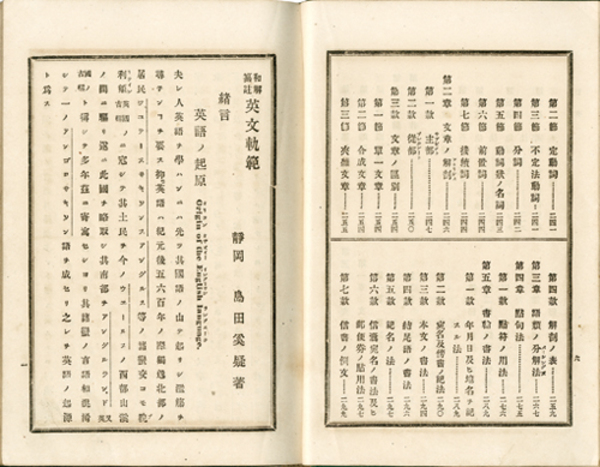 第二節 定動詞 二四一
第三節 不定法動詞 二四一
第四節 分詞 二四二
第五節 動詞狀ノ名詞 二四三
第六節 前置詞 二四四
第七節 接續詞 二四五
第二章 文章ノ解剖 二四六
第一款 主部 二四七
第二款 從部 二五〇
第三款 文章ノ區別
第一節 單一文章 二五一
第二節 合成文章
第三節 夾雜文章 二五五
第四款 解剖ノ表 二五九
第三章 語類ノ分解法 二六七
第四章 點句法 二七五
第一款 點符ノ用法 二七六
第五章 書翰ノ書法 二八七
第一款 年月日及ヒ地名ヲ記
スル法 二八九
第二款 宛名及 書ノ記法 二九〇
第三款 本文ノ書法 二九四
第四款 結尾語ノ書法
第五款 記名ノ法
第六款 宛名ノ書法及ヒ
郵便券ノ貼用法 二九八
第七款 信書ノ例文 二九九
九
和解 英文軌範
靜岡 島田奚疑著
緒言
英語ノ起原 Origin of the English language.
夫レ人英語ヲ學ハンニハ先ヲ其國語ノ由テ起リシ淵源ヲ
尋子ンコヲ要ス抑英語ハ紀元後五六百年ノ際 北部ノ
居民ジユーツ サキソン アングルス等ノ諸
ノ ニ寇シテ其土民ヲ今ノウエールスノ西部山溪
ノ間ニ驅リ遂ニ此國ヲ略取シ其南部ヲアングルランド
ト稱シテ多年茲ニ寄寓セシヨリ其諸 ノ言語相混淆
シテ一ノアングロサキソン語ヲ成セリ之レヲ英語ノ起源
ト爲ス
一